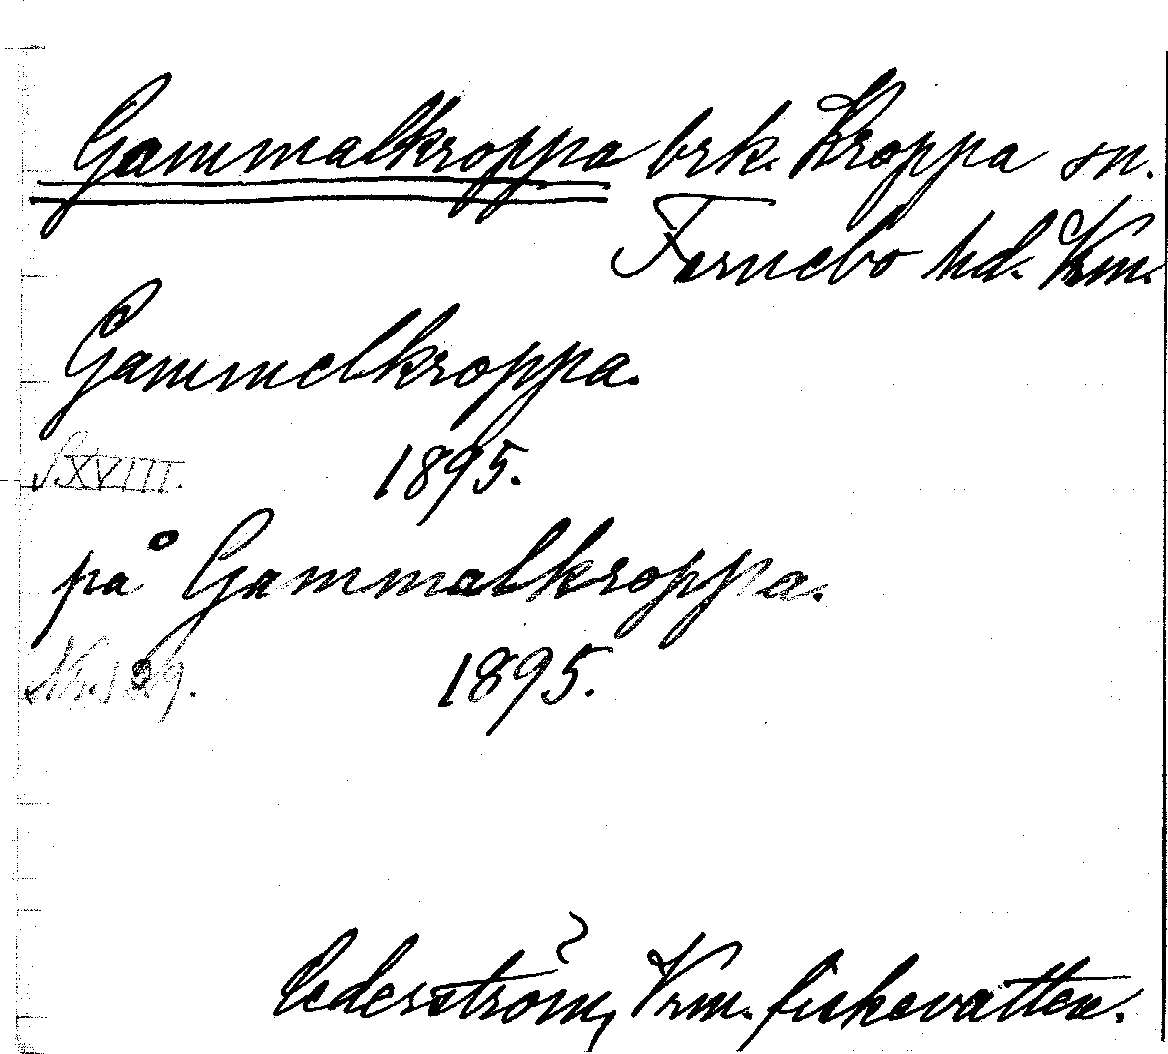 Gammalkroppa brk. Kroppa sn.
Färnebo hd. Vrm.
Gammelkroppa.
S. XVIII. 1895.
på Gammalkroppa.
Nr. 129. 1895.
Cederström, Vrm. fiskevatten.